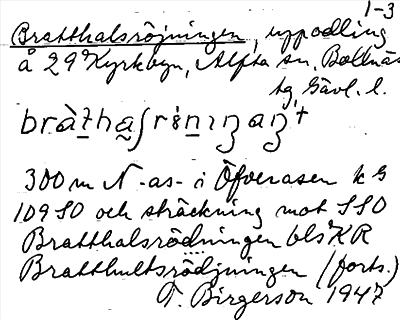 1-3
Bratthalsröjningen, uppodling
å 29 Kyrkbyn, Alfta sn, Bollnäs
tg, Gävl. l.
300 m N -as- i Öfverasen k G
109 SO och sträckning mot SSO
Bratthalsrödningen bls KR
Bratthultsrödjningen (forts.)
T. Birgerson 1947